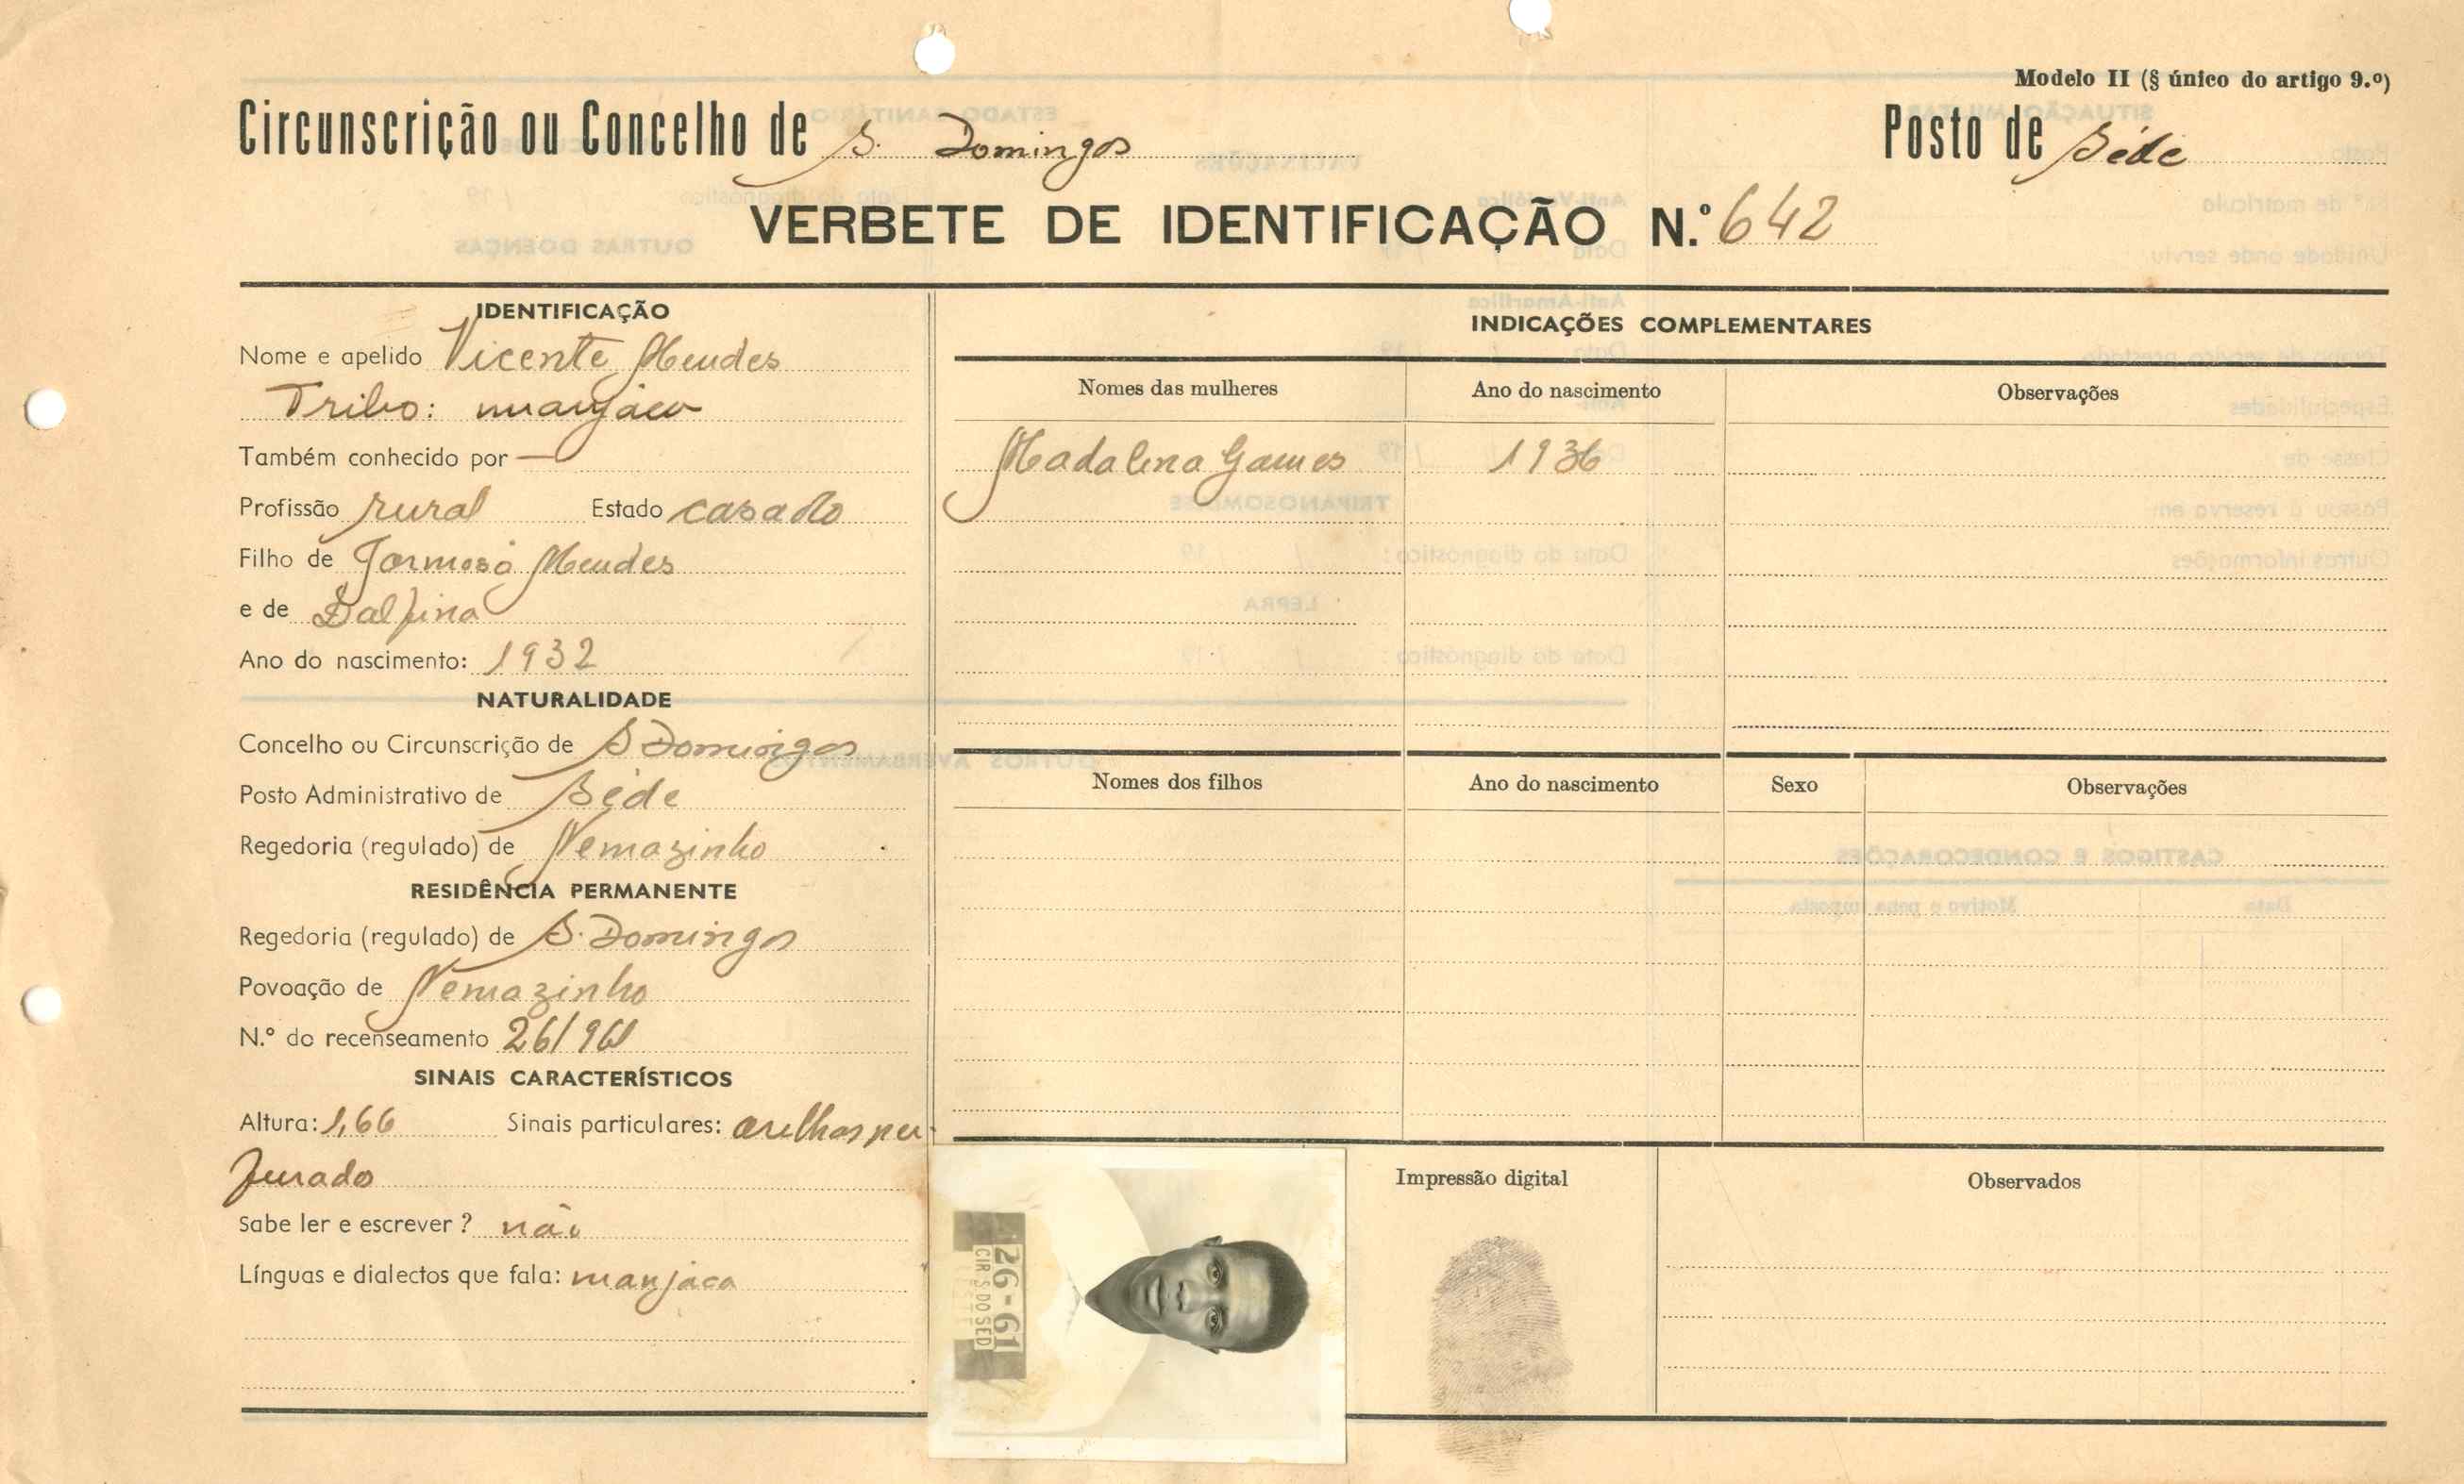 Modelo II (§ único do artigo 9.º)
Circunscrição ou Concelho de S. Domingos
Posto de Séde
VERBETE DE IDENTIFICAÇÃO N.º 642
IDENTIFICAÇÃO
Nome e apelido Vicente Mendes
Tribo: manjaco
Também conhecido por —
Profissão rural Estado casado
Filho de Formosó Mendes
e de Dalfina
Ano do nascimento: 1932
NATURALIDADE
Concelho ou Circunscrição de S Domingos
Posto Administrativo de Séde
Regedoria (regulado) de Nemazinho
RESIDÊNCIA PERMANENTE
Regedoria (regulado) de S. Domingos
Povoação de Nemazinho
N.º do recenseamento 26/961
SINAIS CARACTERÍSTICOS
Altura: 1,66 Sinais particulares: orelhas per
furado
Sabe ler e escrever? não
Línguas e dialectos que fala: manjaca
INDICAÇÕES COMPLEMENTARES
Nomes das mulheres Ano do nascimento Observações
Madalena Gomes 1936
Nomes dos filhos Ano do nascimento Sexo Observações
26-61
CIR S DO SED
Impressão digital
Observados